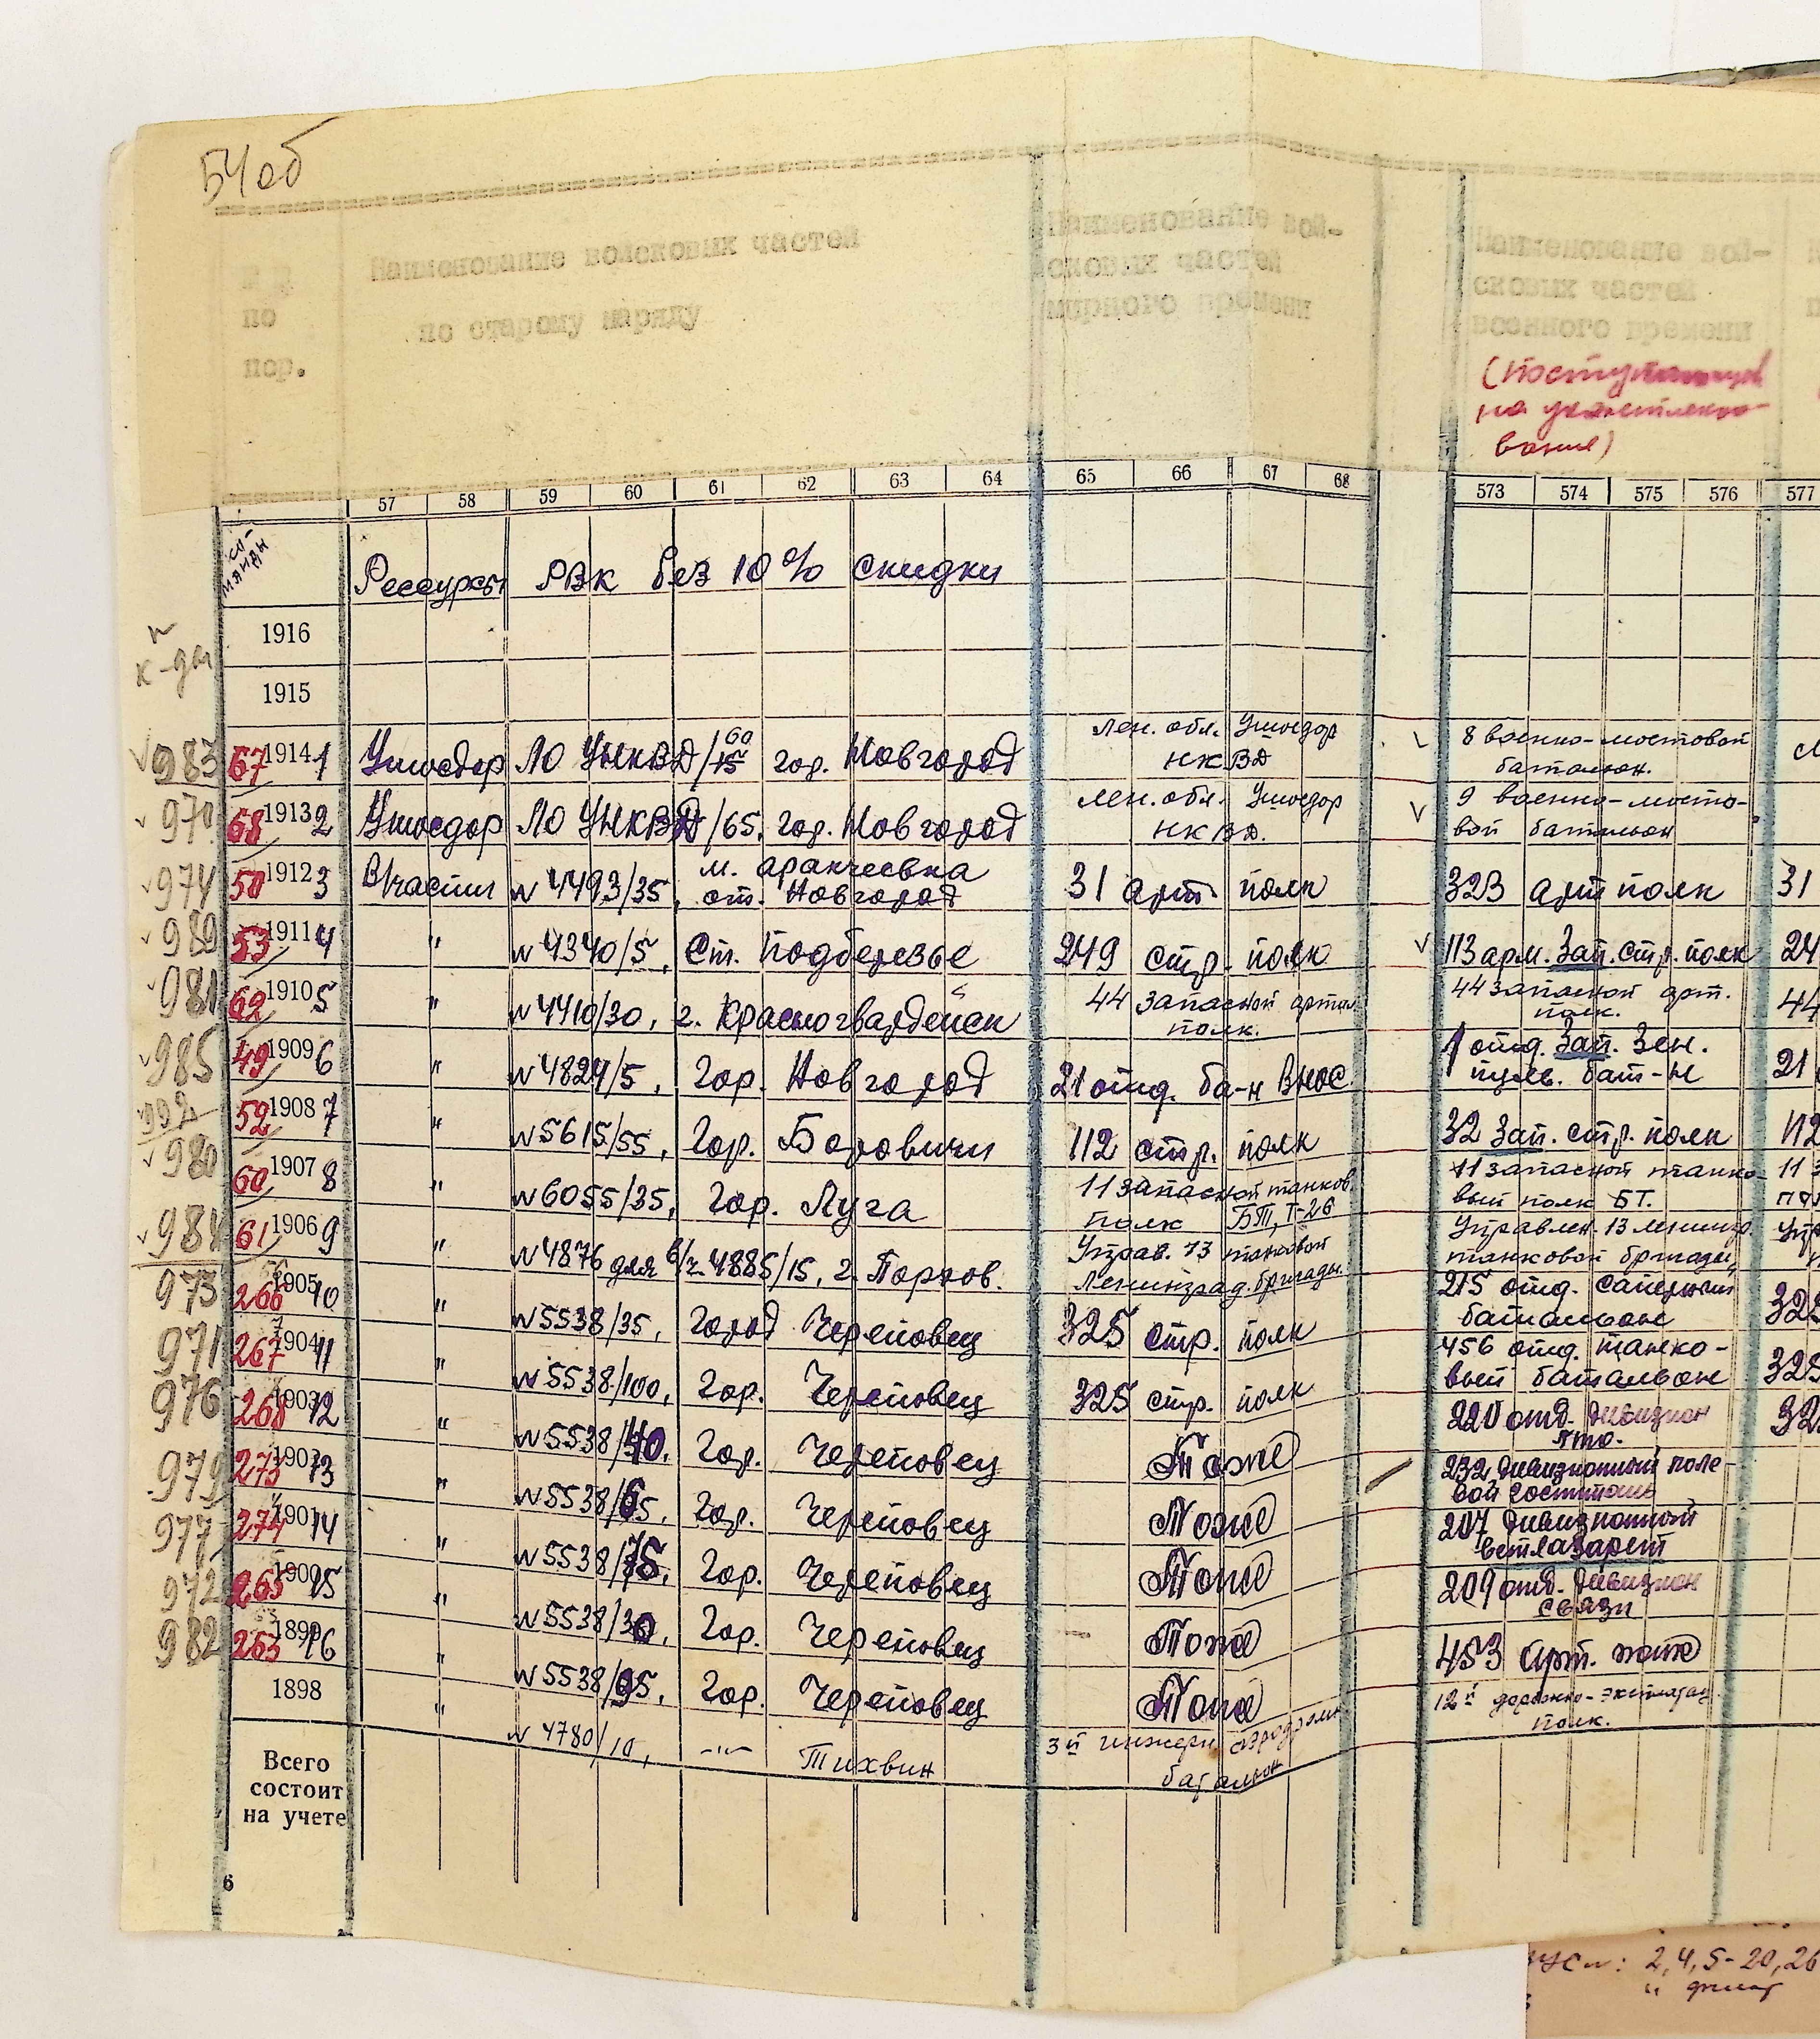 54 об
по
пор.
Наименование войсковых частей
по старому наряду
Наименование вой-
сковых частей
мирного времени
Наименование вой-
сковых частей
военного времени
(поступающих
на укомплекто-
вание)
57 58 59 60 61 62 63 64 65 66 67 68 573 574 575 576 577
Ресурсы РВК без 10% скидки
1916
к-ды
1915
983 67 1914 1 Ушосдор ЛО УНКВД/15 60 гор. Новгород
Лен. обл. Ушосдор
НКВД
8 военно-мостовой
батальон.
970 68 1913 2 Ушосдор ЛО УНКВД/65, гор. Новгород
Лен. обл. Ушосдор
НКВД.
9 военно-мосто-
вой батальон
974 50 1912 3 В/части № 4493/35, м. аракчеевка
ст. Новгород
31 арт. полк
323 арт полк 31
989 53 1911 4 " № 4340/5, Ст. Подберезье
249 стр. полк
113 арм. Зап. стр. полк 24
981 62 1910 5 " № 4410/30, г. Красногвардейск
44 запасной артил
полк.
44 запасной арт.
полк.
44
985 49 1909 6 " № 4824/5, Гор. Новгород
21 отд. ба-н ВНОС
1 отд. Зап. Зен.
пуль. бат-н
21
992 52 1908 7 " № 5615/55, Гор. Боровичи
112 стр. полк
32 Зап. стр. полк 112
980 60 1907 8 " № 6055/35, Гор. Луга
11 запасной танков
полк БТ, Т-26
11 запасной танко-
вый полк БТ.
11 з
984 61 1906 9 " № 4876 для в/ч 4885/15, г. Порхов.
Управ. 13 танковой
Ленинград. бригады.
Управлен. 13 ленингр.
танковой бригады
973 266 1905 10 " № 5538/35, Город Череповец
325 стр. полк
215 отд. саперный
батальон
325
971 267 1904 11 " № 5538/100, Гор. Череповец
325 стр. полк
456 отд. танко-
вый батальон
325
976 268 1903 12 " № 5538/40, Гор. Череповец
Тоже
220 отд. дивизион
ПТО.
32
979 273 1902 13 " № 5538/65, Гор. Череповец
Тоже
232 дивизионный поле-
вой госпиталь
977 274 1901 14 " № 5538/75, Гор. Череповец
Тоже
207 дивизионный
ветлазарет
972 265 1900 15 " № 5538/30, Гор. Череповец
Тоже
209 отд. дивизион
связи
982 263 1899 16 " № 5538/95, Гор. Череповец
Тоже
453 арт. полк
1898
№ 4780/10, —"— Тихвин
3й инжерн аэродромн
батальон
12й дорожно-эксплатац.
полк.
Всего
состоит
на учете
6
2, 4, 5-20, 26